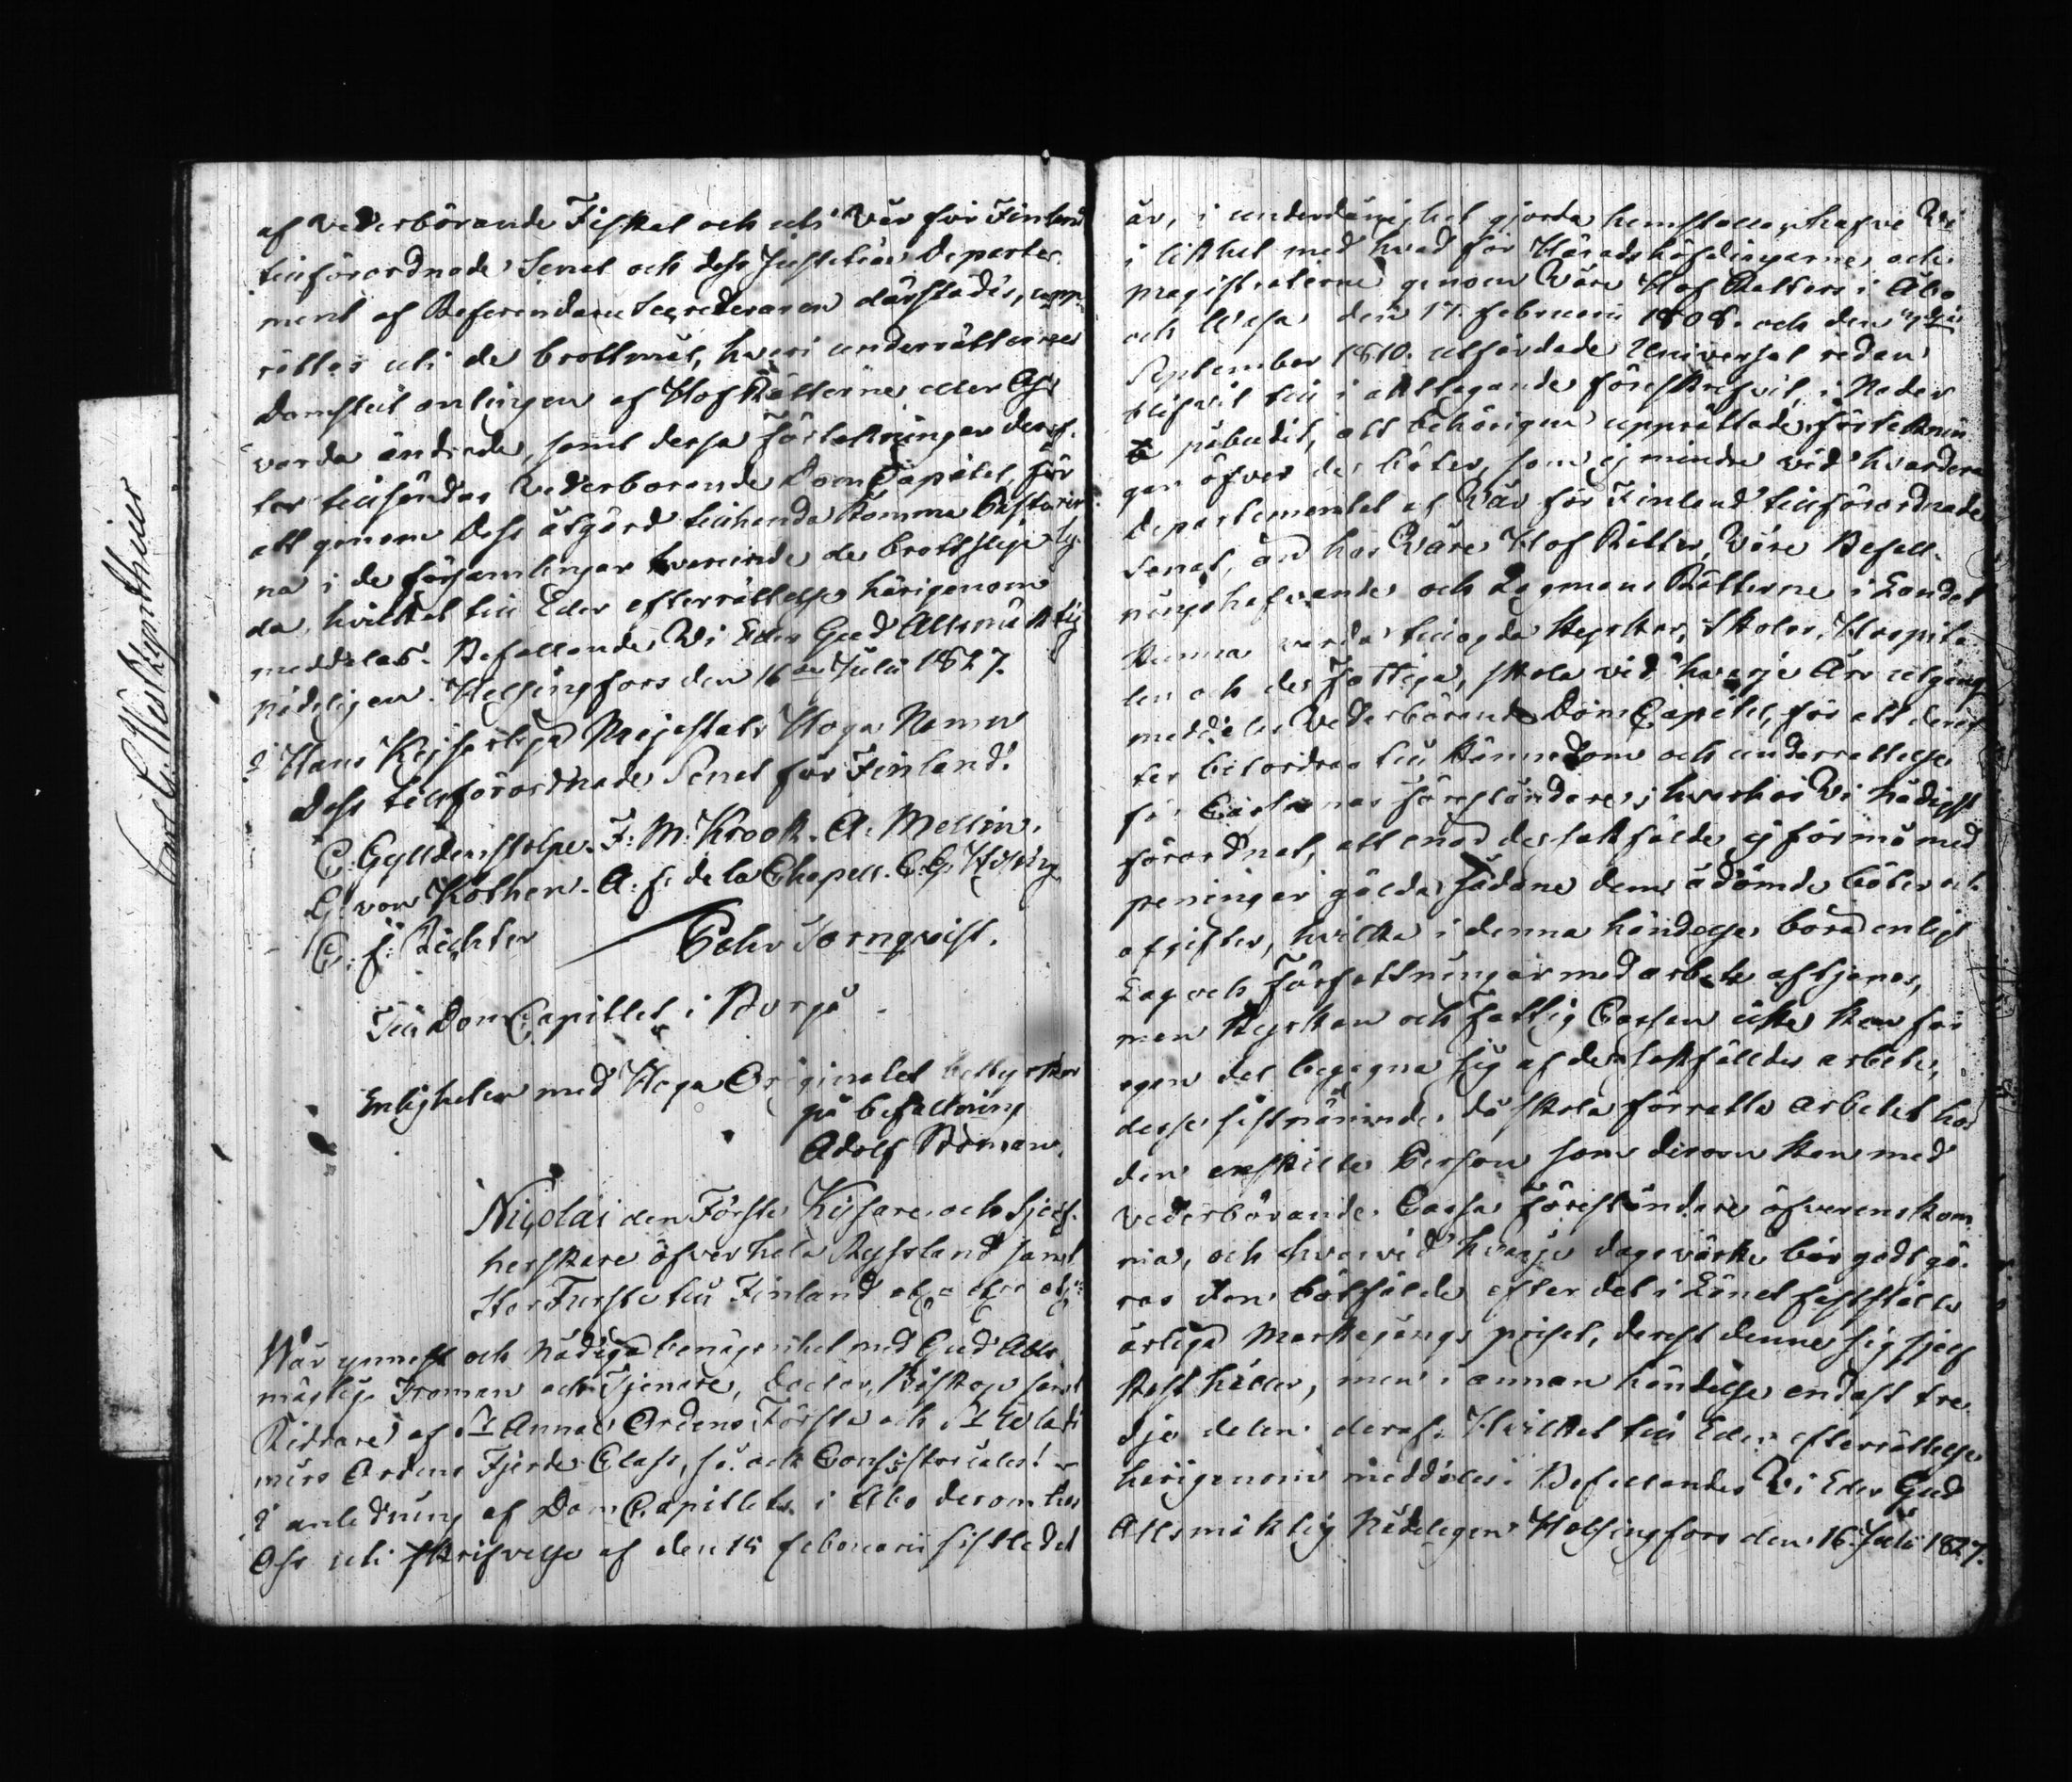 af Vederbörande Fiskal och uti Vår för Finland
tillförordnade Senat och dess Justitiæ Departe-
ment af Referendarie Secreteraren därstädes, upp-
rättas uti de brottmål, hvari underrätternes
Domslut antingen af HofRätterne eller Oss
varda ändrade, samt dessa Förteckningar deref-
ter tillsändas Vederbörande DomCapitel, för
att genom Dess åtgärd tillhanda komma Pastorer-
na i de församlingar hvarinde de brottslige ly-
da, hvilket till Eder efterrättelse härigenom
meddelas. Befallande Wi Eder Gud Allsmäktig
nådeligen. Helsingfors den 16de Julii 1827.
I Hans Kejserliga Majestäts Höga Namn
Dess tillförordnade Senat för Finland.
C. Gyllenstolpe. F: M: Krook. A. Mellin.
G. von Kothen. A: f: de la Chapelle. C. G. Hising
C. J: Richter Pehr Tornqvist.
Till DomCapitlet i Borgå
Enligheten med Höga Originalet betygar
på befallning
Adolf Öhman.
Nicolai den Förste Kejsare och Sjelf-
herskare öfver hela Ryssland samt
StorFurste till Finland etc. etc. etc.
Vår ynnest och Nådiga benägenhet med Gud Alls-
mäktig Troman och Tjenare, Doctor, Biskop samt
Riddare af St Annæ Ordens Första och St Wladi-
mirs Ordens Fjerde Class, så ock Consistoriales!
I anledning af DomCapitlets i Åbo derom hos
Oss uti skrifvelse af den 15 februarii sistledet
år, i underdånighet gjorda hemställan hafve Wi
i likhet med hvad för Häradshöfdingarne och
Magistraterne genom Våre Hof Rätters i Åbo
och Wasa den 17. februarii 1808. och den
September 1810. utfärdade Universal redan
blifvit till i akttagande föreskrifvit, i Nåder
påbudit, att behörigen upprättade förteckning-
gar öfver de böter, som ej mindre vid hvardera
Departementet af Vår för Finland tillförordnade
Senat, än hos Våre Hof Rätter, Våre Befall-
ningshafvande och Lagmans Rätterne i Landet
kunna varda tillagda Kyrkor, Skolor, Hospita-
len och de Fattiga, skola vid hvarje Års utgång
meddelas Vederbörande DomCapitel, för att deref-
ter befordras till kännedom och underrättelse
för Cassornas föreståndare; hvarhos Wi nådigst
förordnat, att enär de sakfälde ej förmå med
peningar gälda sådane dem ådömde böter och
afgifter, hvilka i denna händelse böra enligt
Lag och Författningar med arbete aftjenas,
men Kyrkan och Fattig Cassan icke kan för
egen del begagna sig af de sakfälldes arbete,
desse sistnämnde då skola förrätta arbetet hos
den enskilte Person som derom kan med
Vederbörande Cassa Föreståndare öfverenskom-
ma, och hvarvid hvarje dagsvärke bör godtgö-
ras den bötfälde efter det i Länet fastställda
årliga Markegångs priset, derest denne sig sjelf
kost håller, men i annan händelse endast tre-
dje delen deraf. Hvilket till Eder efterrättelse
härigenom meddeles. Befallandes Wi Eder Gud
Allsmäktig Nådeligen Helsingfors den 16. Julii 1827.